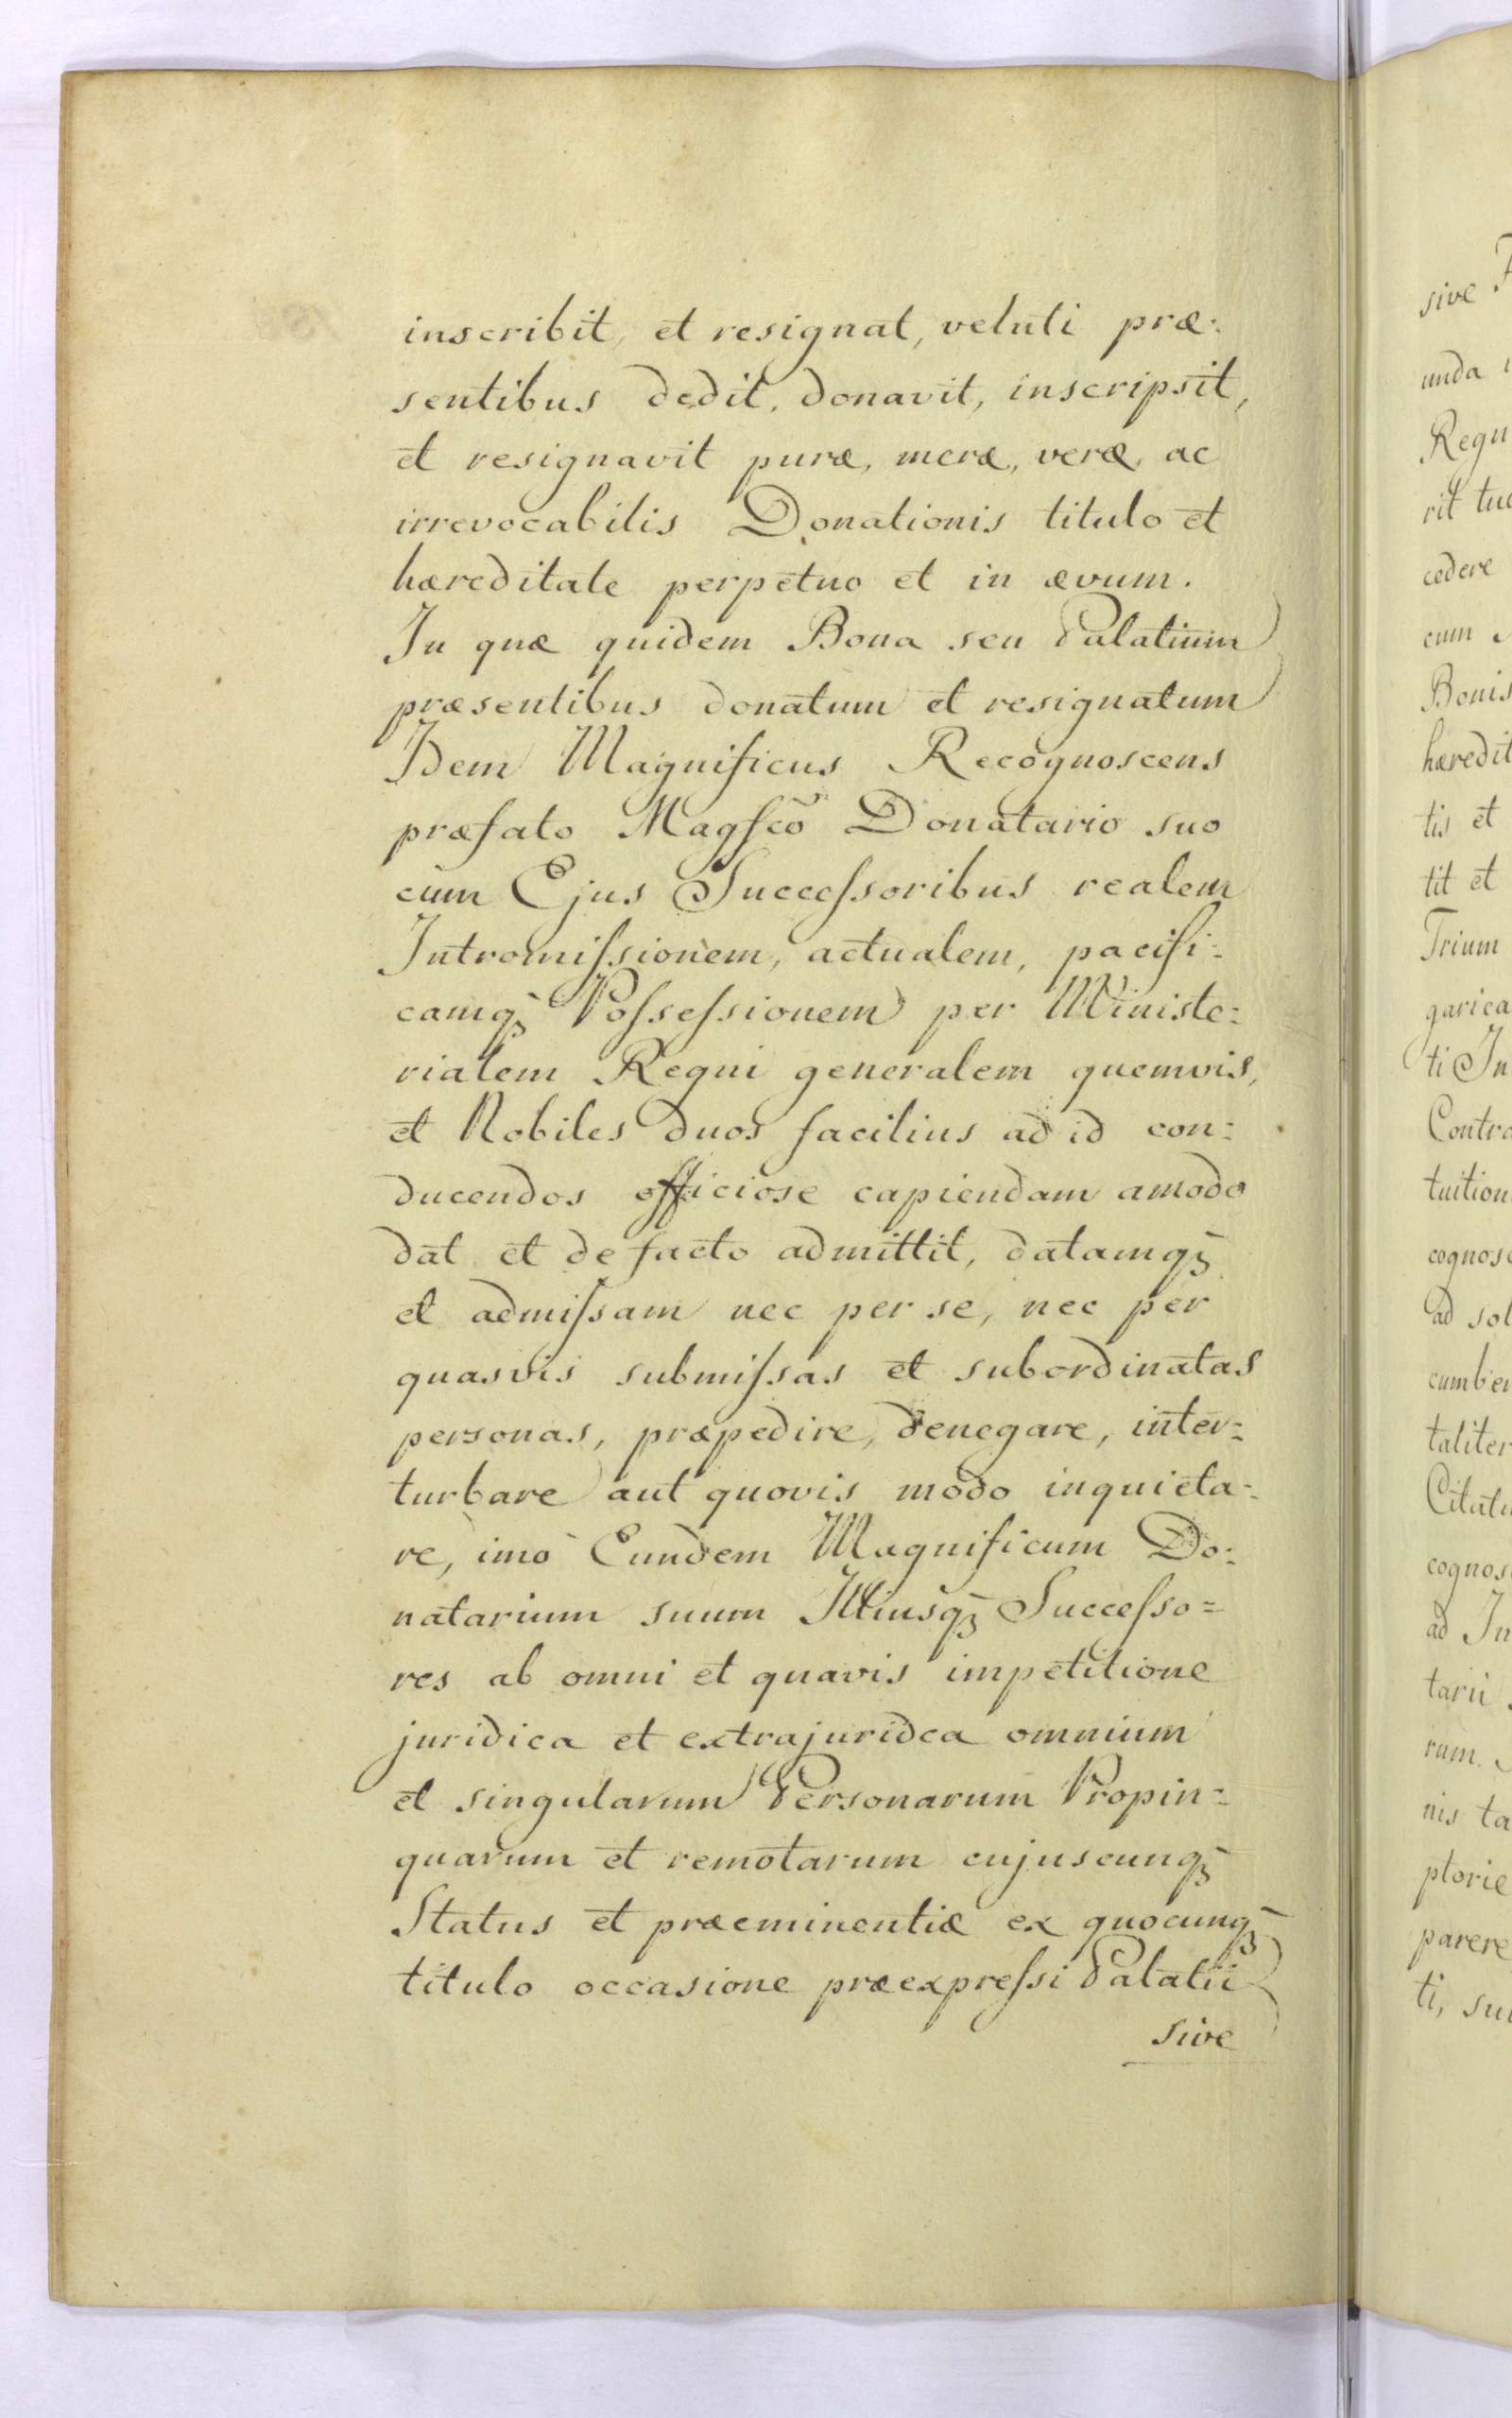 inscribit, et resignat, veluti præ:
sentibus dedit, donavit, inscripsit,
et resignavit puræ, meræ, veræ, ac
irrevocabilis Donationis titulo et
hæreditate perpetuo et in ævum.
In quæ quidem Bona seu Palatium
præsentibus donatum et resignatum
Idem Magnificus Recognoscens
præfato Magfcõ Donatario suo
cum Ejus Succeſsoribus realem
Intromiſsionem, actualem, pacifi:
camqꝫ Poſseſsionem per Ministe:
rialem Regni generalem quemvis,
et Nobiles duos facilius ad id con:
ducendos officiose capiendam amodo
dat et de facto admittit, datamqꝫ
et admiſsam nec per se, nec per
quasvis submiſsas et subordinatas
personas, præpedire, denegare, inter:
turbare aut quovis modo inquieta:
re, imò Eundem Magnificum Do:
natarium suum Illiusqꝫ Succeſso=
res ab omni et quavis impetitione
juridica et extrajuridca omnium
et singularum Personarum Propin=
quarum et remotarum cujuscunqꝫ
Status et præeminentiæ ex quocunqꝫ
titulo occasione præexpreſsi Palatii
sive
sive
unda
Regn
rit tue
cedere
cum
Bonis
hæredit
tis et
tit et
Trium
garica
ti In
Contra
tuition
cognosc
ad sol
cumben
taliter
Citatu
cognos
ad In
tarii
rum
nis ta
ptorie
parere
ti, su